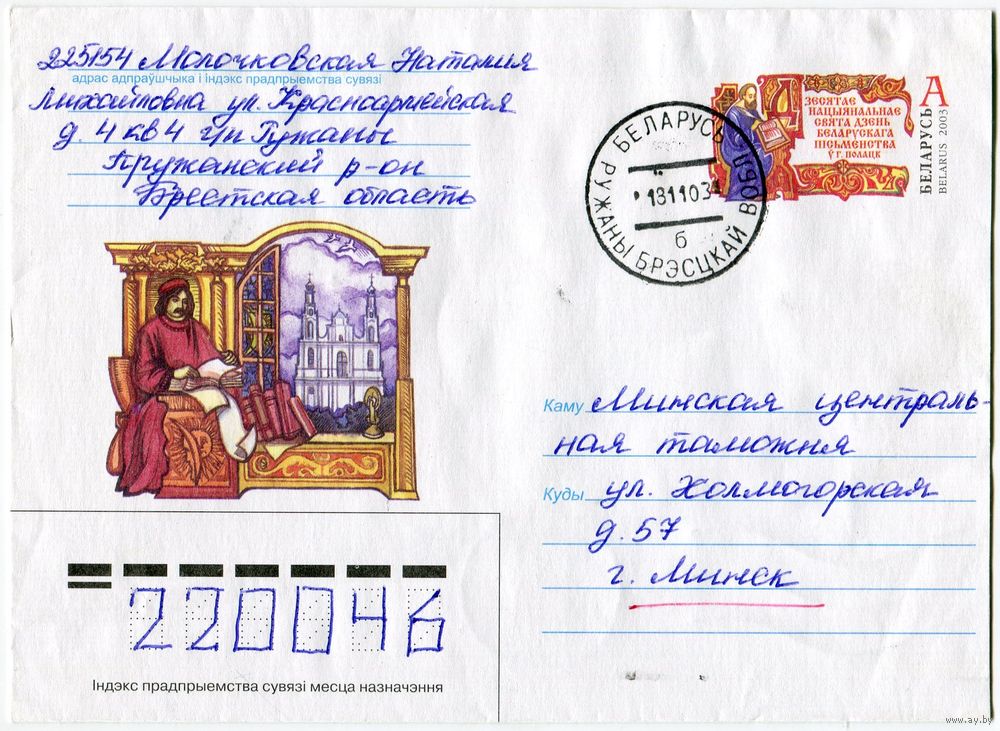 225154 Молочковская Наталия
адрас адпраўшчыка і індэкс прадпрыемства сувязі
Михайловна ул. Красноармейская
д. 4 кв 4 г/п Ружаны
Пружанский р-он
Брестская область
ЗЕСЯТАЕ
НАЦЫЯНАЛЬНАЕ
СВЯТА ДЗЕНЬ
БЕЛАРУСКАГА
ПІСЬМЕНСТВА
Ў Г. ПОЛАЦК
А
БЕЛАРУСЬ
BELARUS 2003
БЕЛАРУСЬ
181103
б
РУЖАНЫ БРЭСЦКАЙ ВОБЛ
Каму Минская централь-
ная таможня
Куды ул. Холмогорская
д. 57
г. Минск
220046
Індэкс прадпрыемства сувязі месца назначэння
www.ay.by